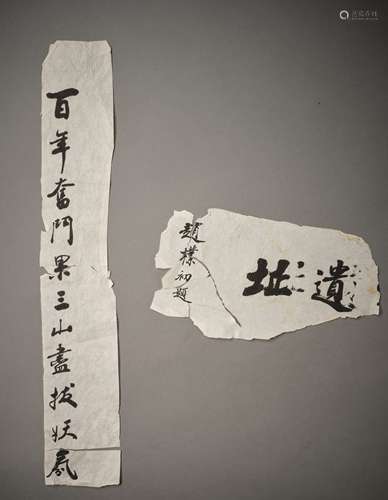 百年奮鬥果三山盡拔妖氛
遺址
趙樸初題